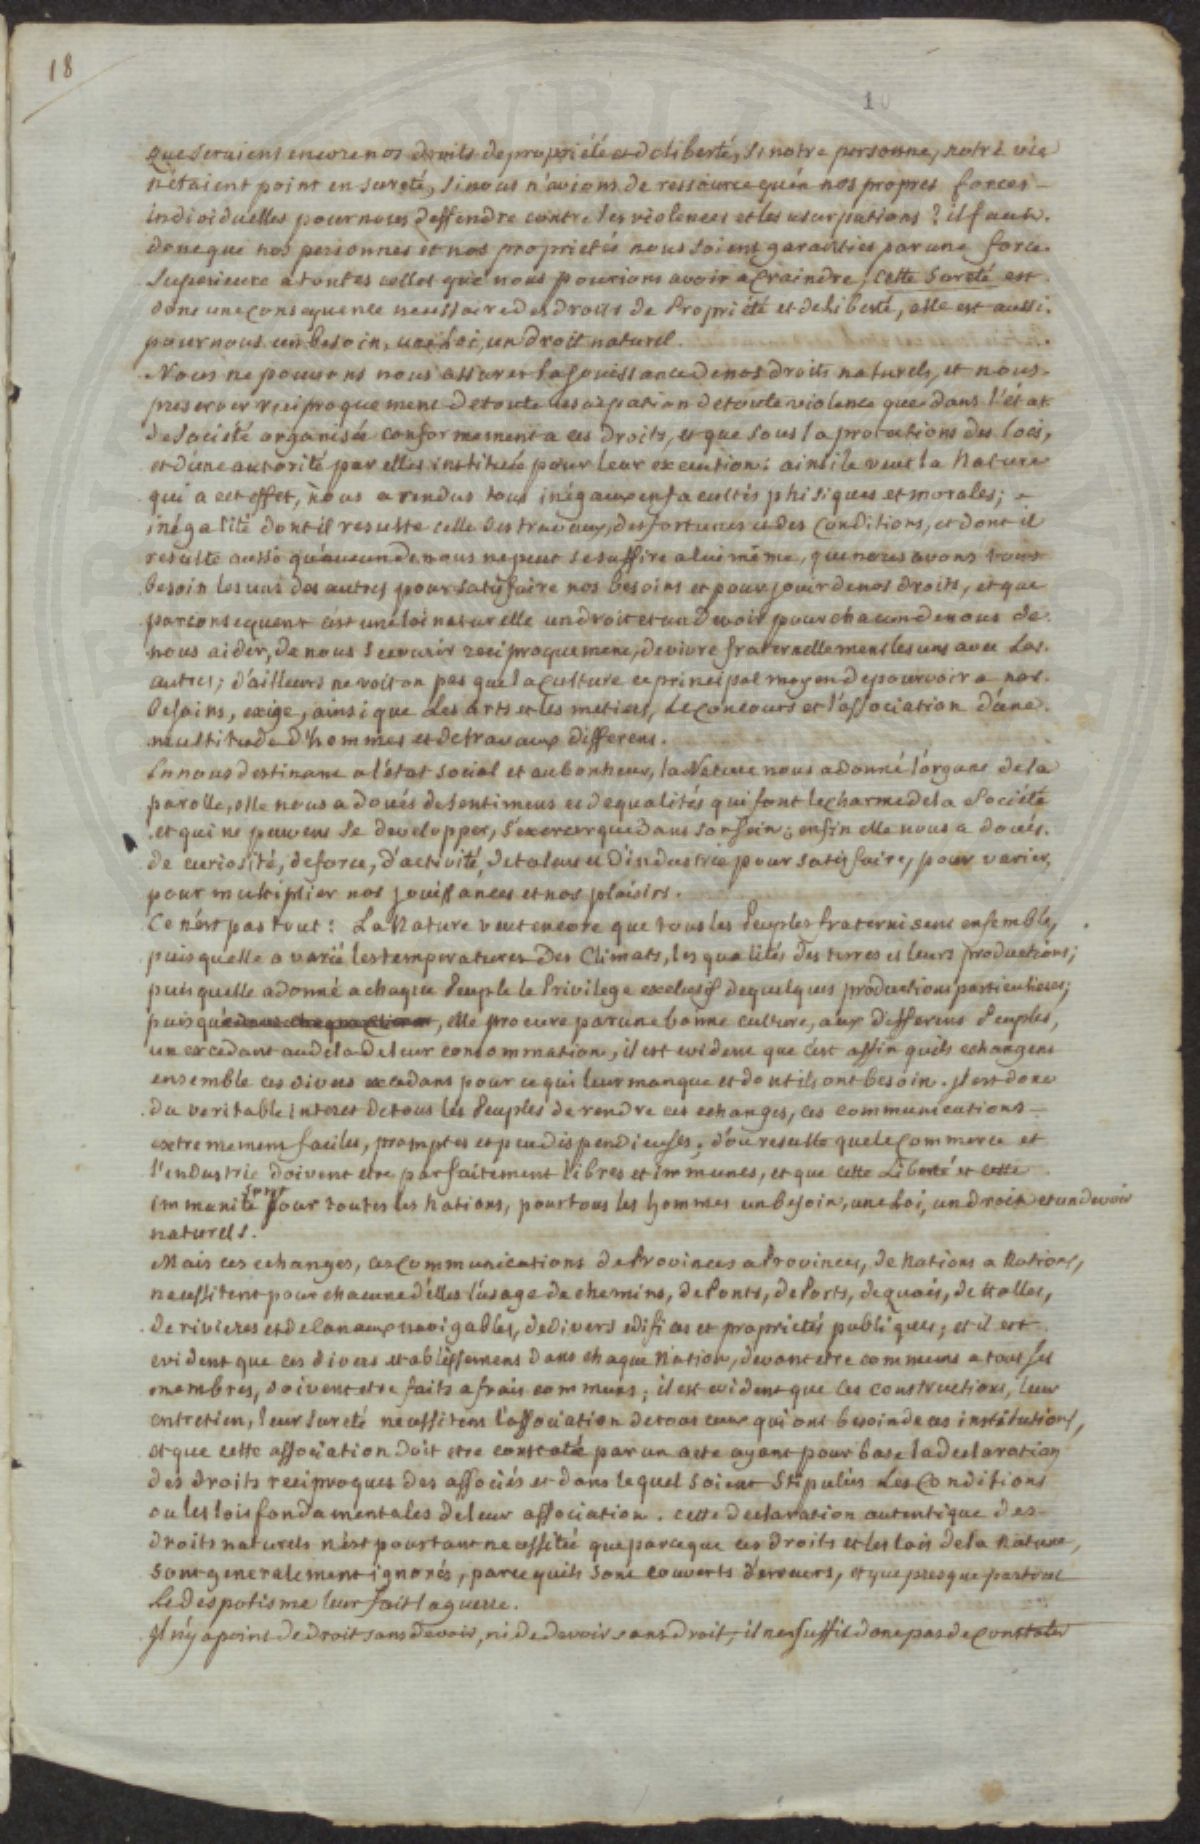 18
10
Que seraient encore nos droits de propriété et de liberté, si notre personne, notre vie
n'étaient point en sureté, si nous n'avions de ressource qu'en nos propres forces
individuelles pour nous deffendre contre les violences et les usurpations ? il faut
donc que nos personnes et nos proprietés nous soient garanties par une force
superieure a toutes celles que nous pourions avoir a craindre; cette sureté est
donc une consequence necessaire des droits de Propriété et de liberté, elle est aussi
pour nous un besoin, une Loi, un droit naturel.
Nous ne pouvons nous assurer la jouissance de nos droits naturels, et nous
preserver reciproquement de toute usurpation de toute violence que dans l'état
de société organisée conformement a ces droits, et que sous la protections des lois,
et d'une autorité par elles instituée pour leur execution: ainsi le veut la Nature
qui a cet effet, nous a rendus tous inégaux en facultés phisiques et morales;
inégalité dont il resulte celle des travaux, des fortunes et des conditions, et dont il
resulte aussi qu'aucun de nous ne peut se suffire a lui même, que nous avons tous
besoin les uns des autres pour satisfaire nos besoins et pour jouir de nos droits, et que
par consequent c'est une loi naturelle un droit et un devoir pour chacun de nous de
nous aider, de nous secourir reciproquement, de vivre fraternellement les uns avec les
autres; d'ailleurs ne voit on pas que la culture ce principal moyen de pourvoir a nos
besoins, exige, ainsi que les arts et les metiers, le concours et l'association d'une
multitude d'hommes et de travaux differens.
En nous destinant a l'état social et au bonheur, la Nature nous a donné l'organe de la
parolle, elle nous a doués de sentimens et de qualités qui font le charme de la Société
et qui ne peuvent se developper, s'exercer que dans son sein; enfin elle nous a doués
de curiosité, de force, d'activité, de talens et d'industrie pour satisfaire, pour varier,
pour multiplier nos jouissances et nos plaisirs.
Ce n'est pas tout: La Nature veut encore que tous les Peuples fraternisent ensemble,
puis quelle a varié les temperatures des Climats, les qualités des terres et leurs productions;
puis quelle a donné a chaque Peuple le Privilege exclusif de quelques productions particulieres;
puisque dans chaque Climat, elle procure par une bonne culture, aux differens Peuples,
un excedant au dela de leur consommation, il est evident que c'est affin quils echangent
ensemble ces divers excedans pour ce qui leur manque et dont ils ont besoin. Il est donc
du veritable interet de tous les Peuples de rendre ces echanges, ces communications
extremement faciles, promptes et peu dispendieuses; d'ou resulte que le Commerce et
l'industrie doivent etre parfaitement libres et immunes, et que cette Liberté et cette
immunité sont pour toutes les Nations, pour tous les hommes un besoin, une Loi, un droit et un devoir
naturels.
Mais ces echanges, ces communications de Provinces a Provinces, de Nations a Nations,
necessitent pour chacune d'elles l'usage de chemins, de Ponts, de Ports, de quais, de Halles,
de rivieres et de Canaux navigables, de divers edifices et proprietés publiques; et il est
evident que ces divers etablissemens dans chaque Nation, devant etre communs a tout ses
membres, doivent etre faits a frais communs; il est evident que ces constructions, leur
entretien, leur sureté necessitent l'association de tous ceux qui ont besoin de ces institutions,
et que cette association doit etre constaté par un acte ayant pour base la declaration
des droits reciproques des associés et dans lequel soient stipulés les Conditions
ou les lois fondamentales de leur association. cette declaration autentique des
droits naturels n'est pourtant necessitée que parceque ces droits et les lois de la Nature,
sont generalement ignorés, parcequils sont couverts d'erreurs, et que presque partout
le despotisme leur fait la guerre.
Il n'y a point de droit sans devoir, ni de devoir sans droit; il ne suffit donc pas de constater